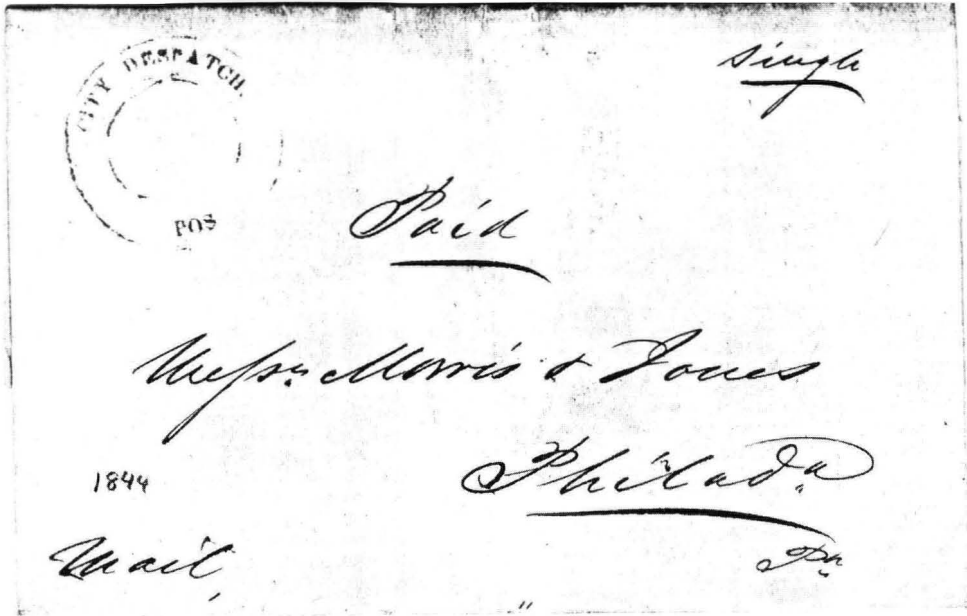 CITY DESPATCH
POS
Single
Paid
Messrs Morris & Jones
Philada
1844
Pa
Mail